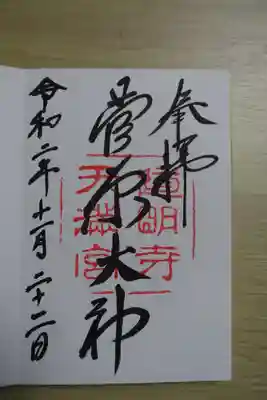 奉拝
菅原大神
道明寺
天満宮
令和二年十一月二十二日